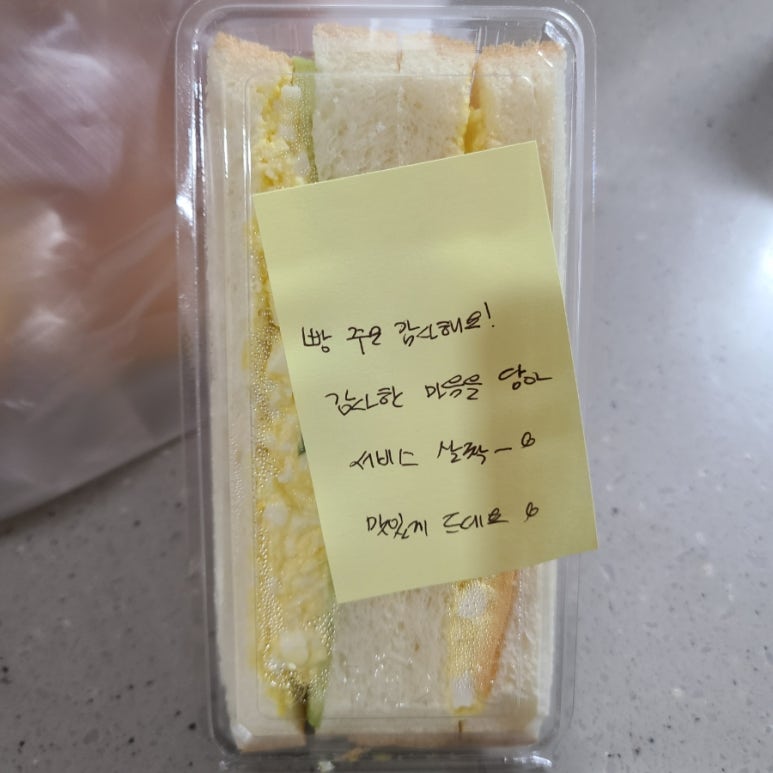 빵 주문 감사해요!
감사한 마음을 담아
서비스 살짝~
맛있게 드세요